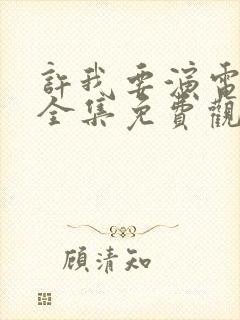 許我要演電
全集免費觀
顧清知